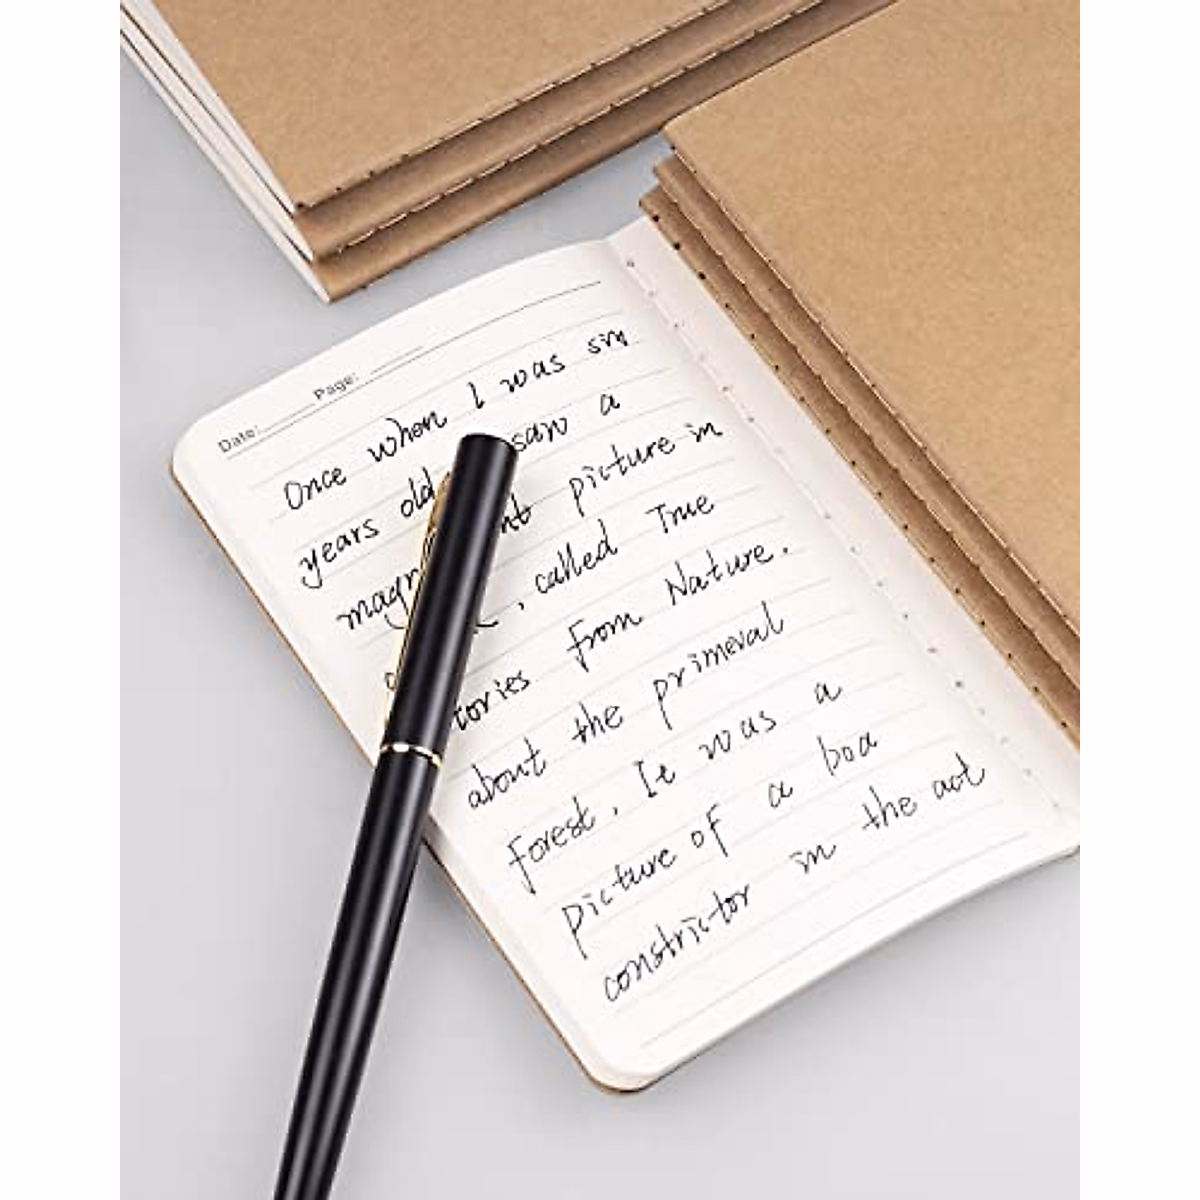 Date: Page:
Once when I was six
years old saw a
picture in
, called True
from Nature.
about the primeval
forest. It was a
picture of a boa
constrictor in the act